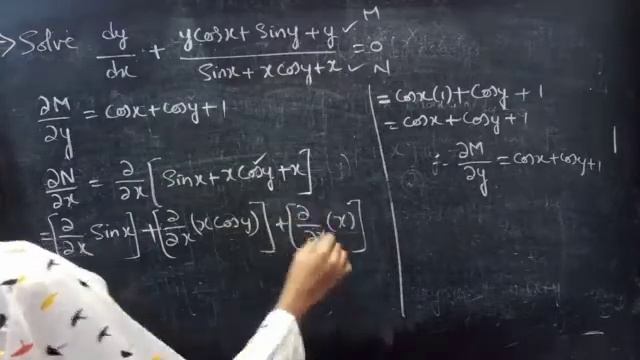 Solve dy/dx + (ycosx + Siny + y)/(Sinx + xcosy + x) = 0
M
N
∂M/∂y = cosx + cosy + 1
∂N/∂x = ∂/∂x [Sinx + xcosy + x]
= [∂/∂x Sinx] + [∂/∂x (xcosy)] + [∂/∂x (x)]
= cosx(1) + cosy + 1
= cosx + cosy + 1
∴ ∂M/∂y = cosx + cosy + 1